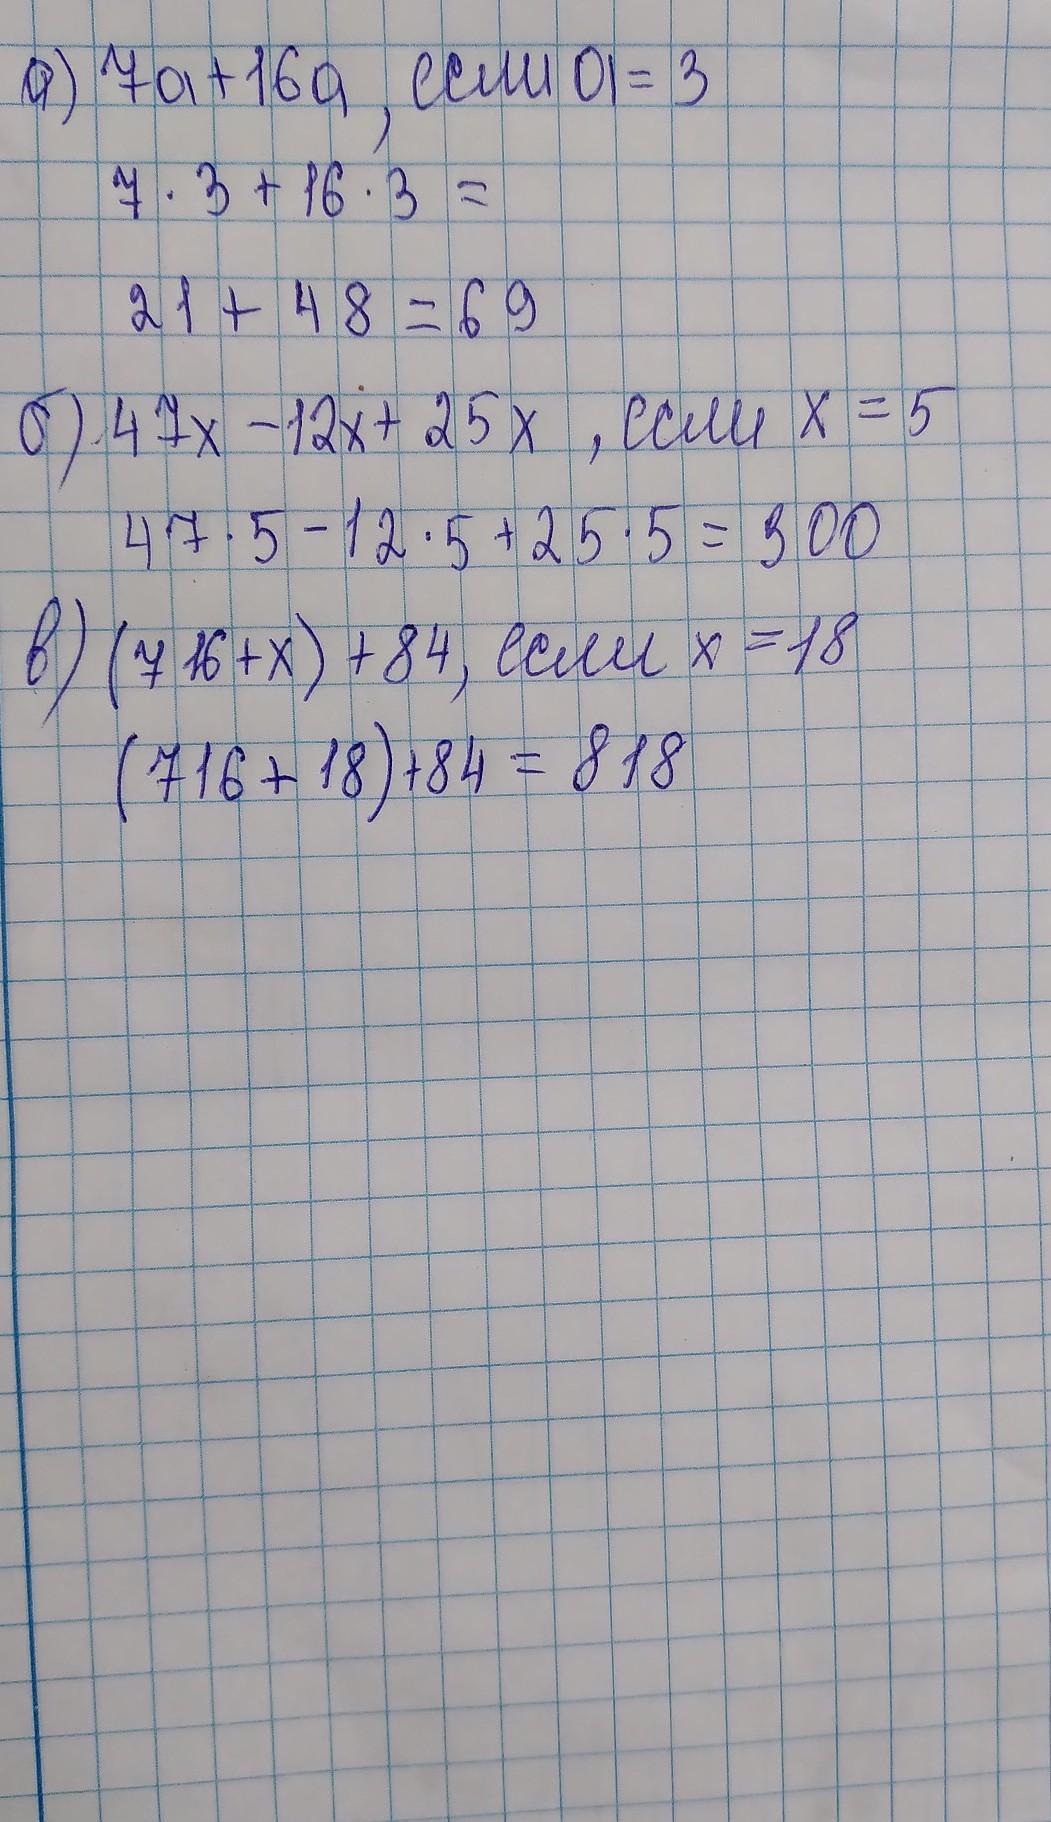 а) 7а+16а, если а = 3
7 · 3 + 16 · 3 =
21 + 48 = 69
б) 47х - 12х + 25х, если х = 5
47 · 5 - 12 · 5 + 25 · 5 = 300
в) (716+х) + 84, если х = 18
(716 + 18) + 84 = 818